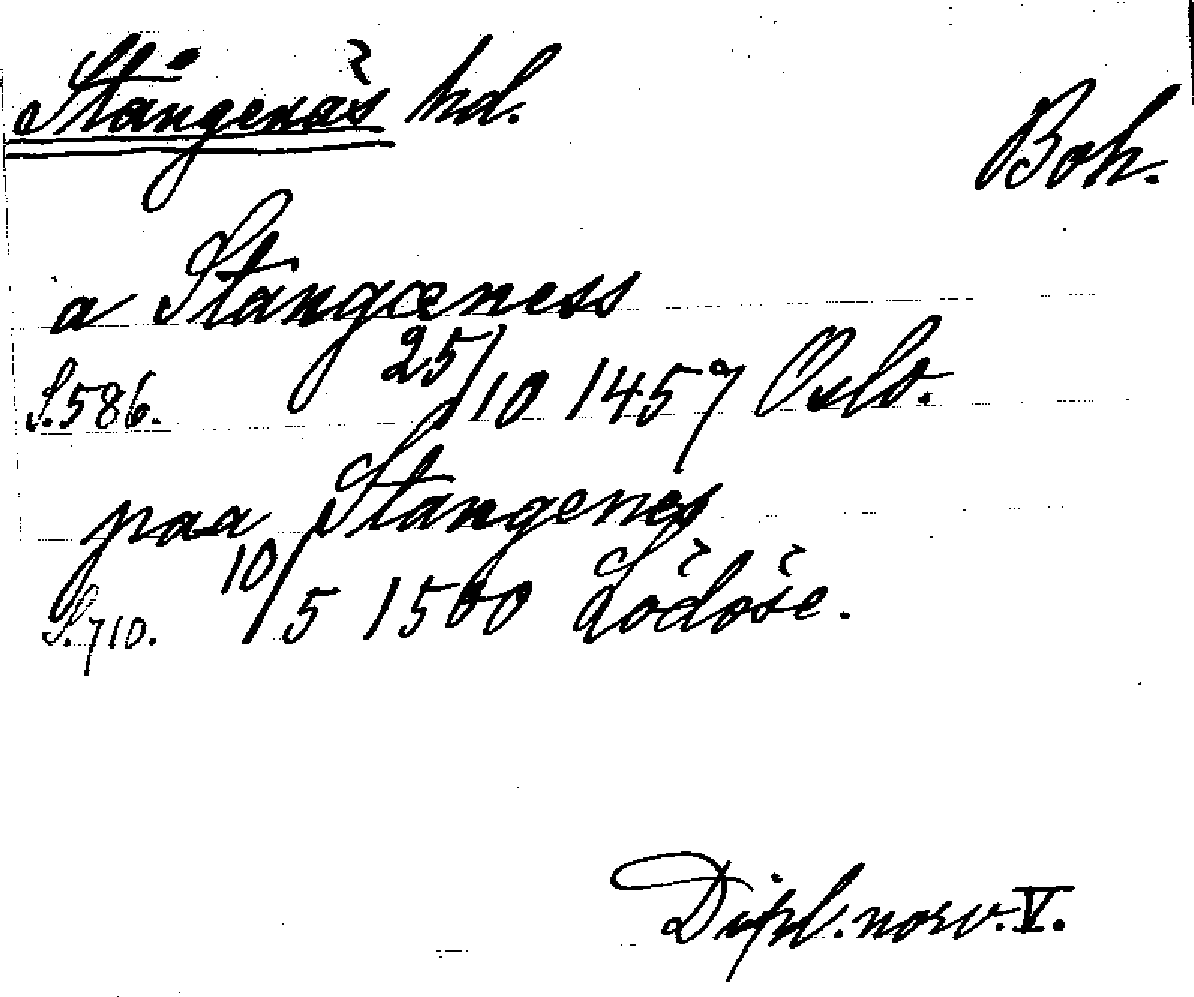 Stångenäs hd.
Boh.
a Stangœness
S. 586. 25/10 1457 Oslo.
paa Stangenes
S. 710. 10/5 1500 Lödöse.
Dipl. norv. V.